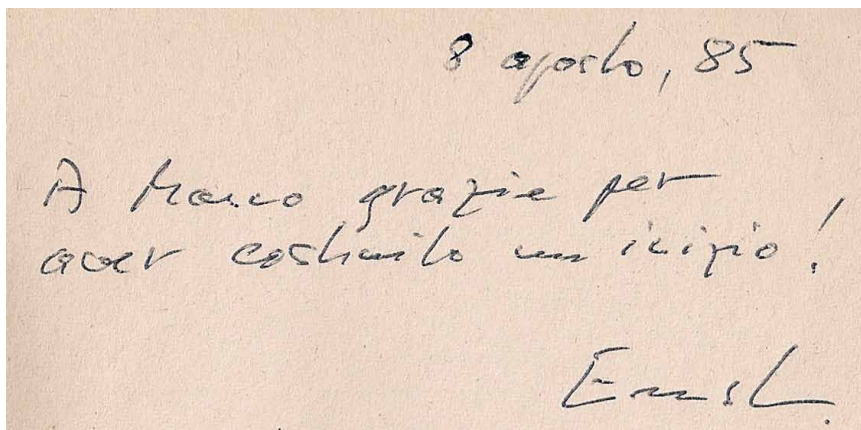 8 agosto, 85
A Marco grazie per
aver costruito un inizio!
Ernst.